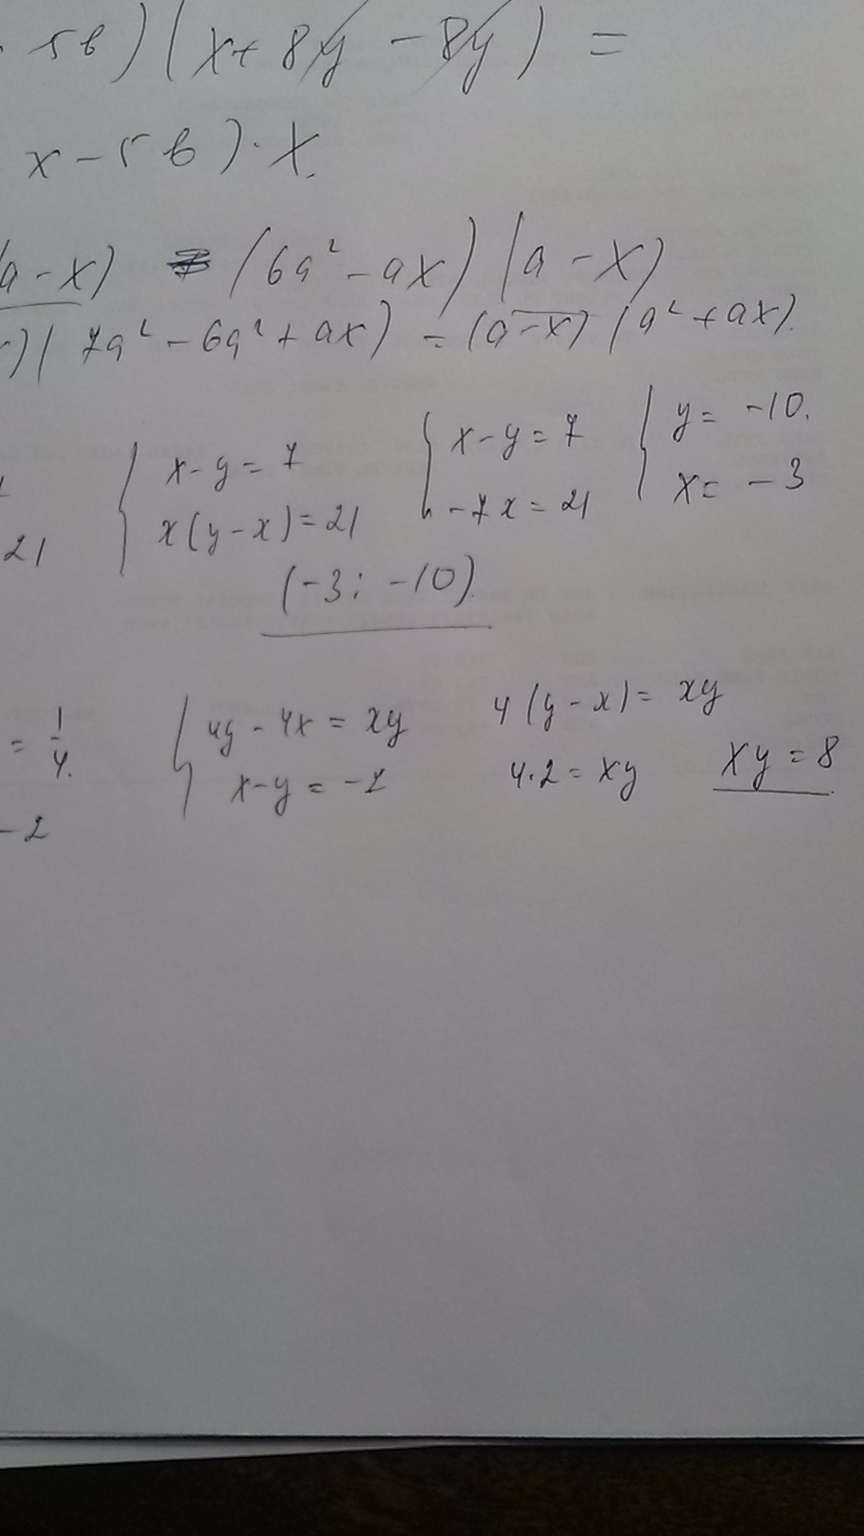 5b)(x + 8y - 8y) =
x - 5b)·x.
(a - x) (6a² - ax)(a - x)
)(7a² - 6a² + ax) = (a - x)(a² + ax).
{ x - y = 7 { x - y = 7 { y = -10.
21 x(y - x) = 21 -7x = 21 x = -3
(-3; -10).
= 1/4. { 4y - 4x = xy 4(y - x) = xy
-2 x - y = -2 4·2 = xy xy = 8